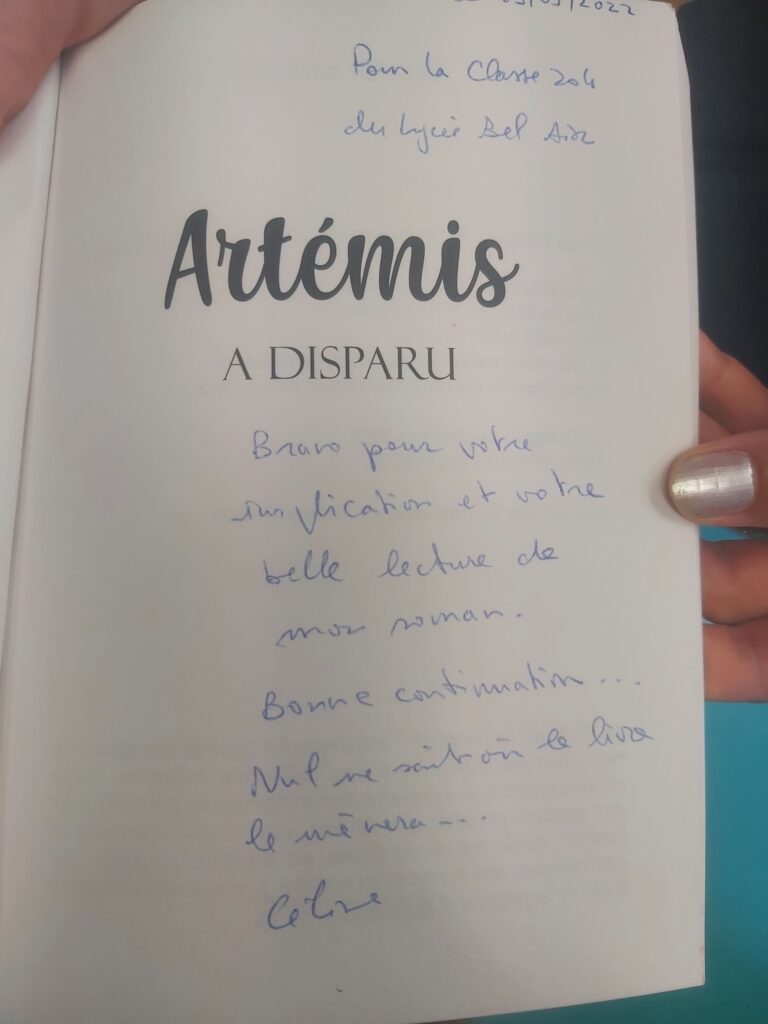 03/05/2022
Pour la Classe 204
du Lycée Bel Air
Artémis
A DISPARU
Bravo pour votre
implication et votre
belle lecture de
mon roman.
Bonne continuation...
Nul ne sait où le livre
le mènera...
Céline